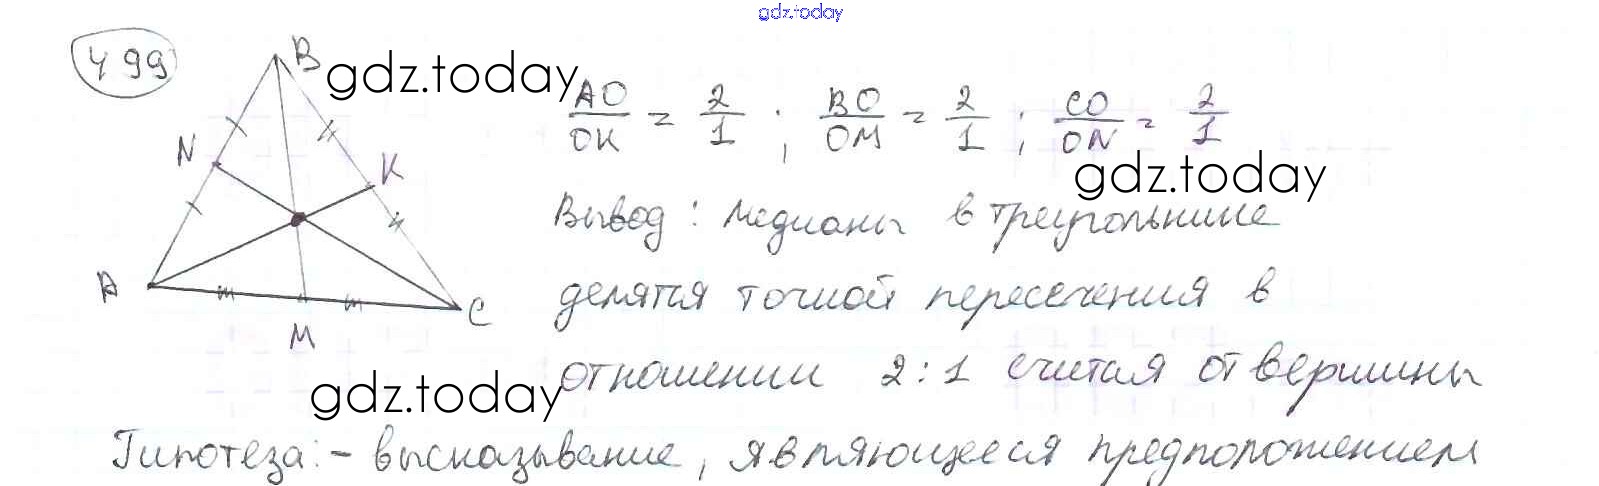 gdz.today
499
B
gdz.today
AO/OK = 2/1 ; BO/OM = 2/1 ; CO/ON = 2/1
N
K
gdz.today
Вывод: медианы в треугольнике
A
C
M
делятся точкой пересечения в
отношении 2:1 считая от вершины
gdz.today
Гипотеза: - высказывание, являющееся предположением